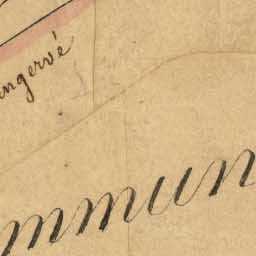 ngervé
ommun